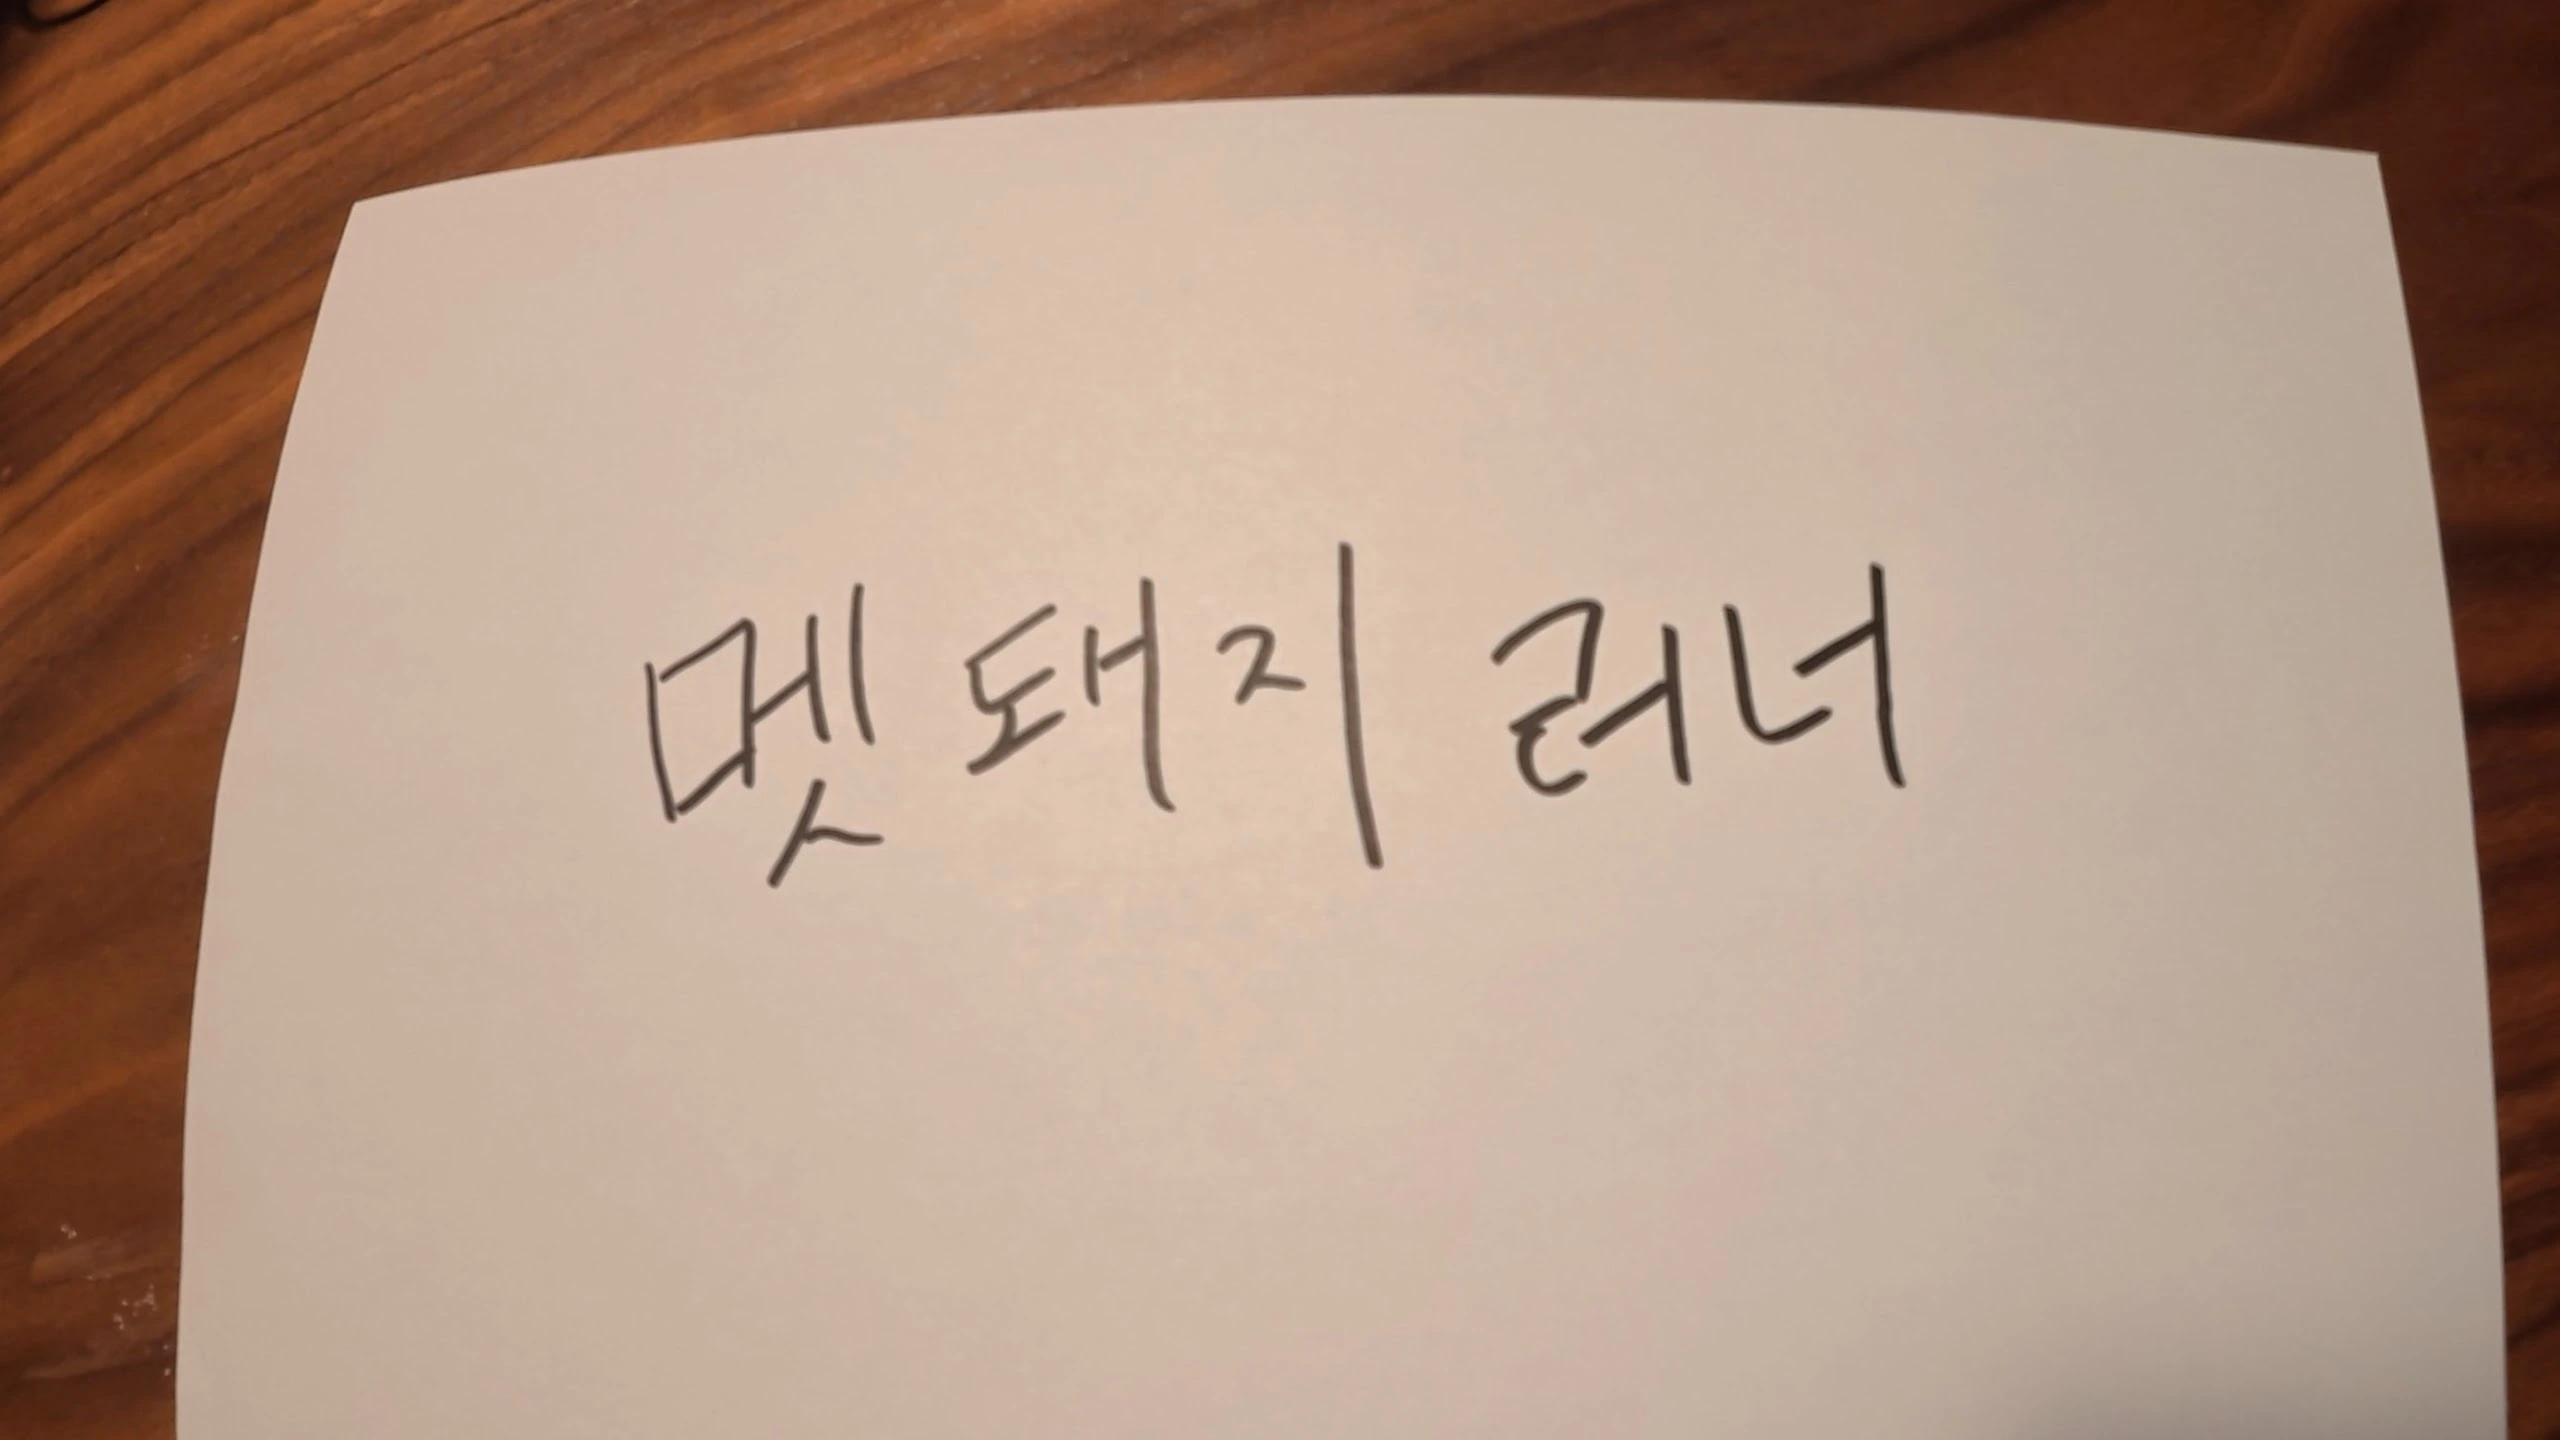 멧돼지 러너